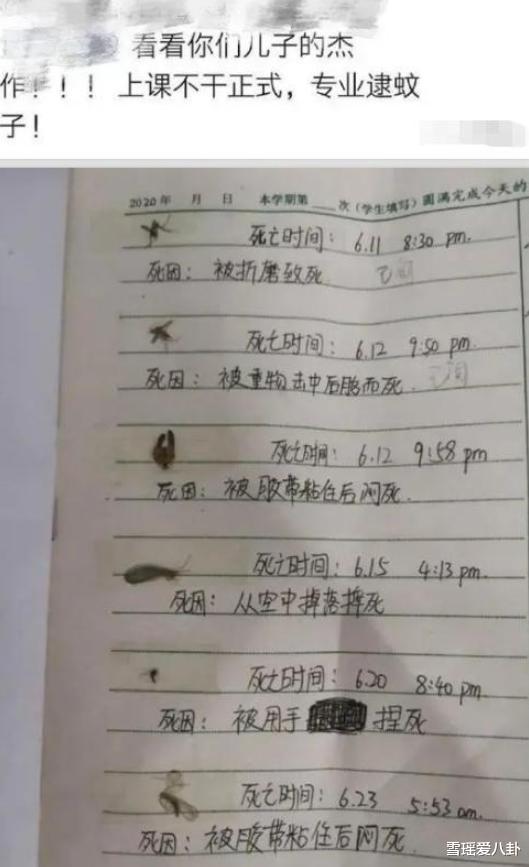 看看你们儿子的杰
作！！！上课不干正式，专业逮蚊
子！
2020年 月 日 本学期第___次（学生填写）圆满完成今天的
死亡时间：6.11 8:30 pm.
死因：被折磨致死
死亡时间：6.12 9:50 pm.
死因：被重物击中后脑而死.
死亡时间：6.12 9:58 pm
死因：被胶带粘住后闷死.
死亡时间：6.15 4:13 pm.
死因：从空中掉落摔死
死亡时间：6.20 8:40 pm
死因：被用手 捏死
死亡时间：6.23 5:53 am.
死因：被胶带粘住后闷死.
雪瑶爱八卦